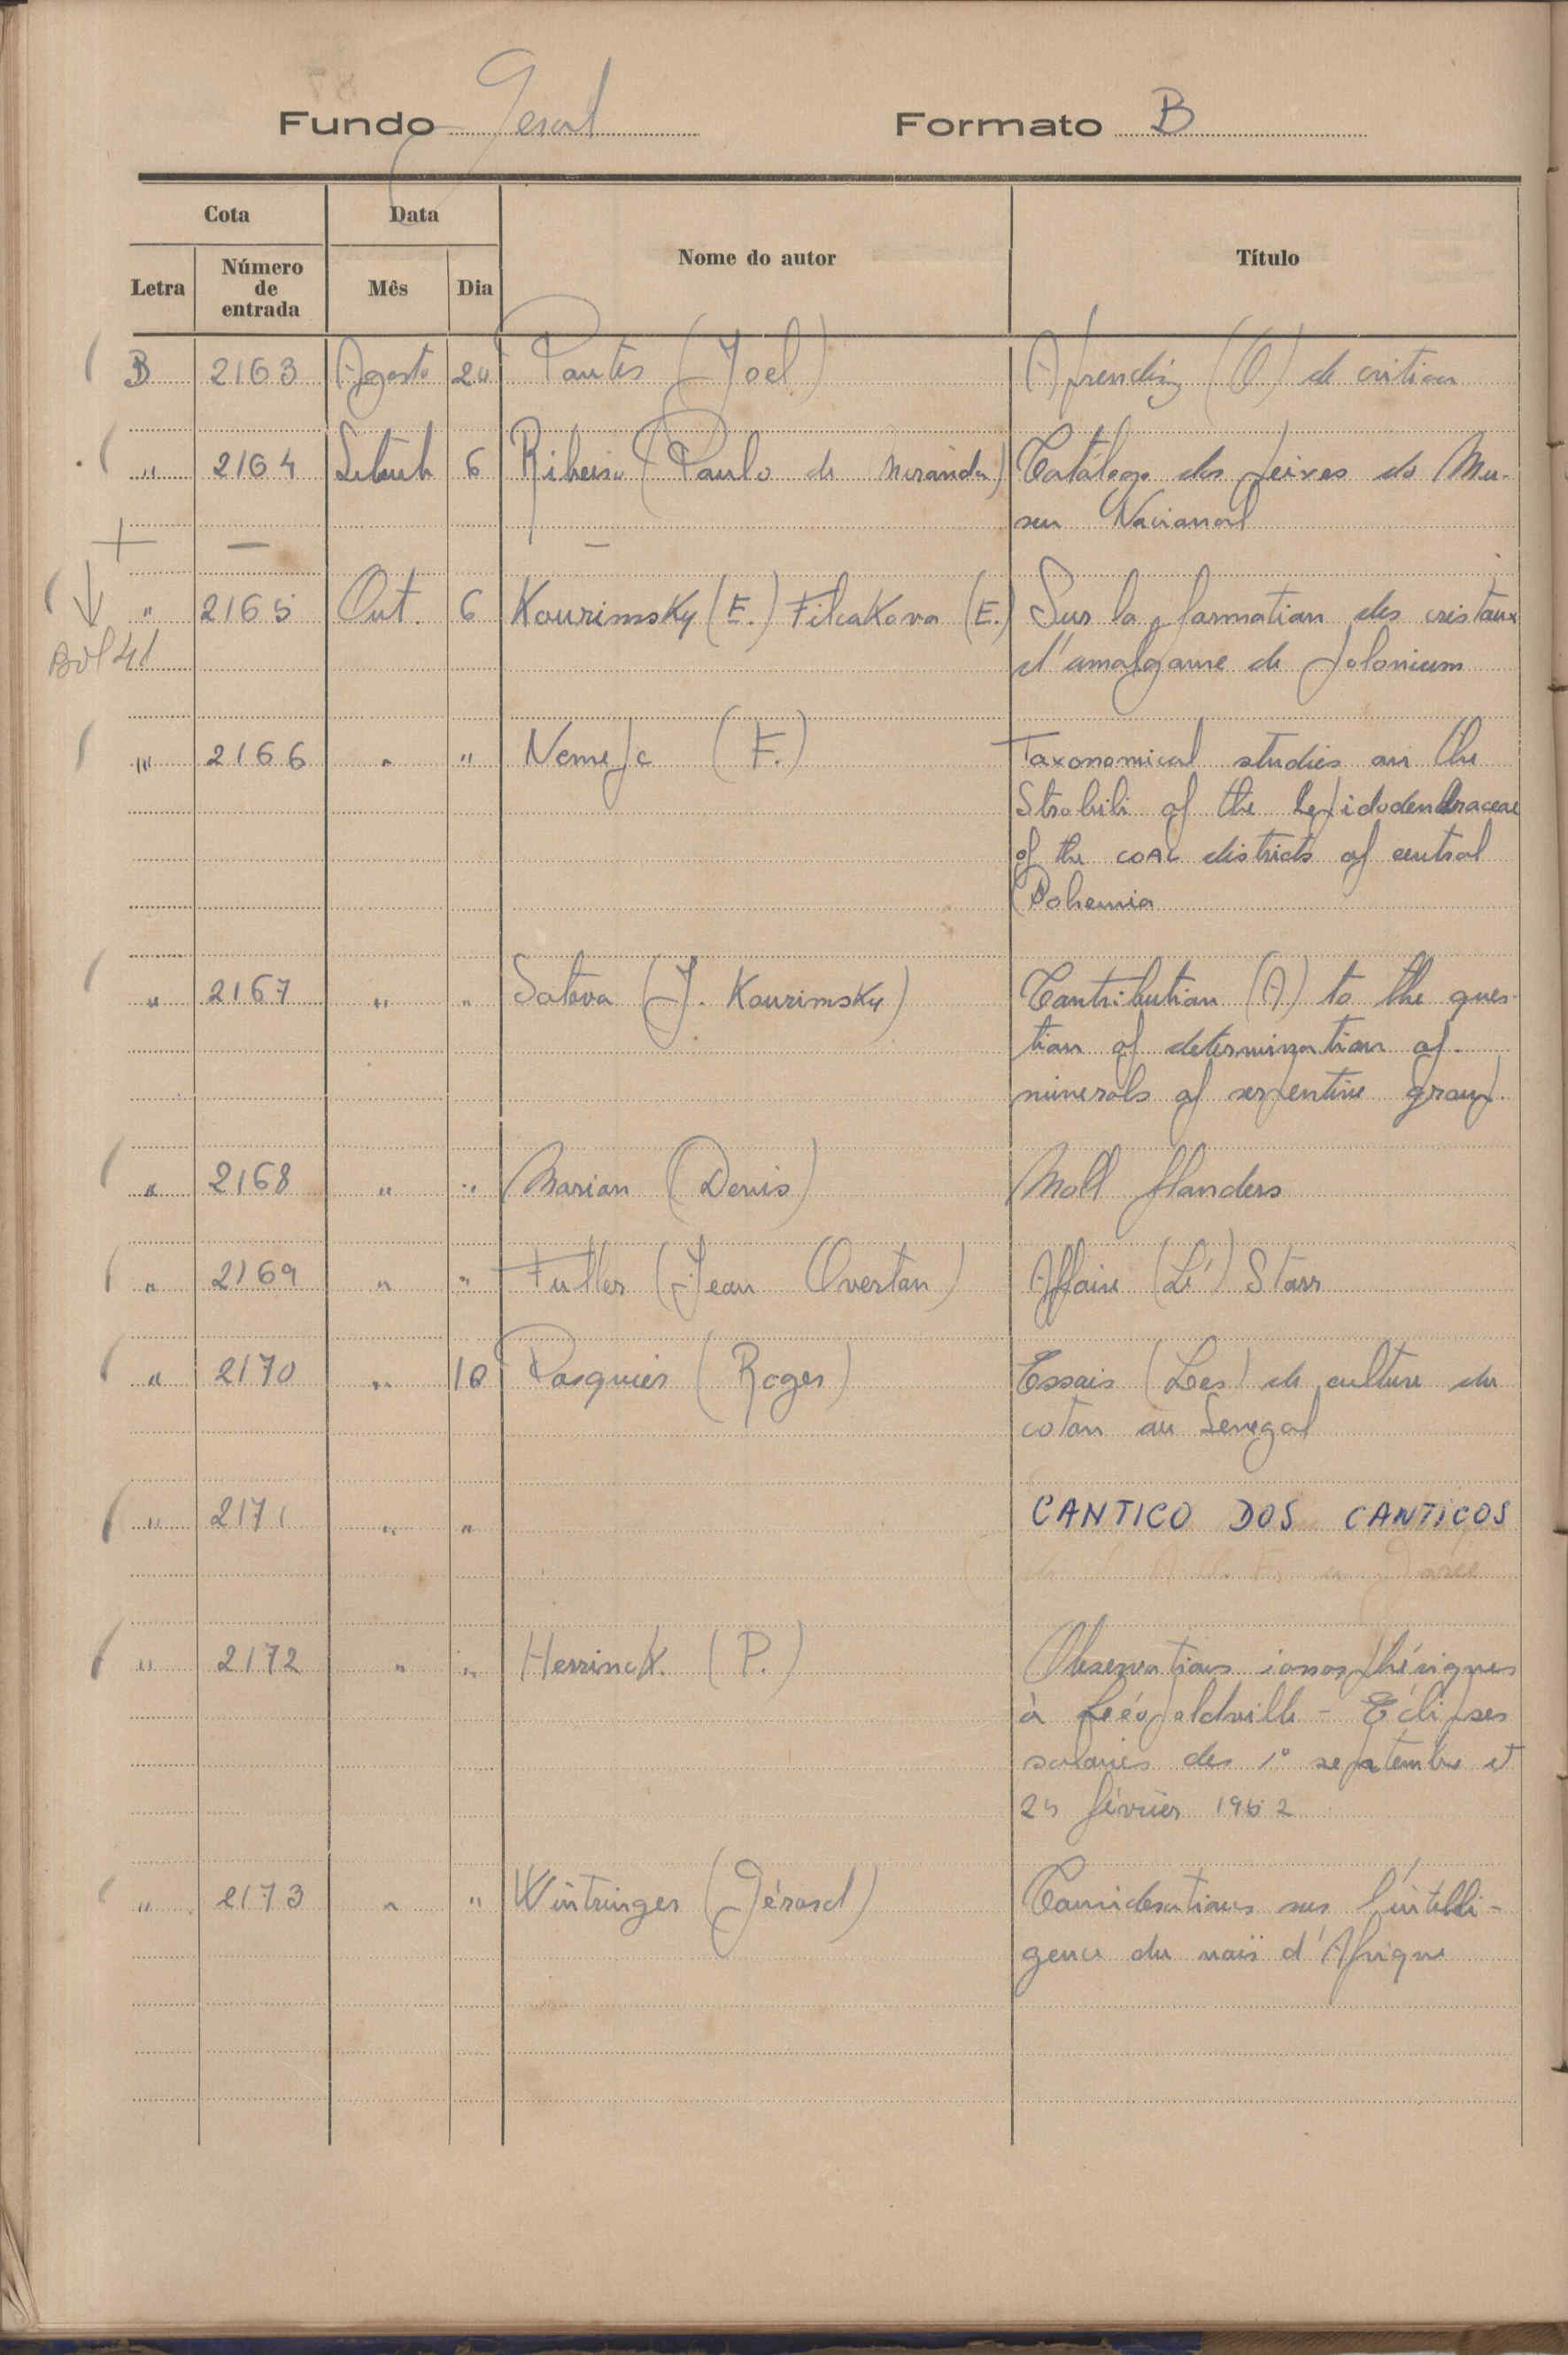 Fundo Geral Formato B
Cota Data Nome do autor Título
Letra Número de entrada Mês Dia
B 2163 Agosto 20 Pontes (Joel) Aprendiz (O) de critica
" 2164 Setemb 6 Ribeiro (Paulo de Miranda) Catálogo dos peixes do Mu-
seu Nacional
+ — —
" 2165 Out. 6 Kourimsky (E.) Filcakova (E.) Sur la formation des cristaux
Bol 41 d'amalgame de polonium
" 2166 " " Nemejc (F.) Taxonomical studies on the
Strobili of the Lepidodendraceae
of the coal districts of central
Bohemia
" 2167 " " Satova (J. Kourimsky) Contribution (A) to the ques-
tion of determination of
minerals of serpentine group.
" 2168 " " Marion (Denis) Moll flanders
" 2169 " " Fuller (Jean Overton) Affaire (L') Starr
" 2170 " 10 Pasquier (Roger) Essais (Les) de culture du
coton au Senegal
" 2171 " " CANTICO DOS CANTICOS
" 2172 " " Herrinck (P.) Observations ionosphériques
à Léopoldville - Éclipses
solaires des 1º septembre et
25 février 1952
" 2173 " " Wintringer (Gérard) Considerations sus l'intelli-
gence du noir d'Afrique